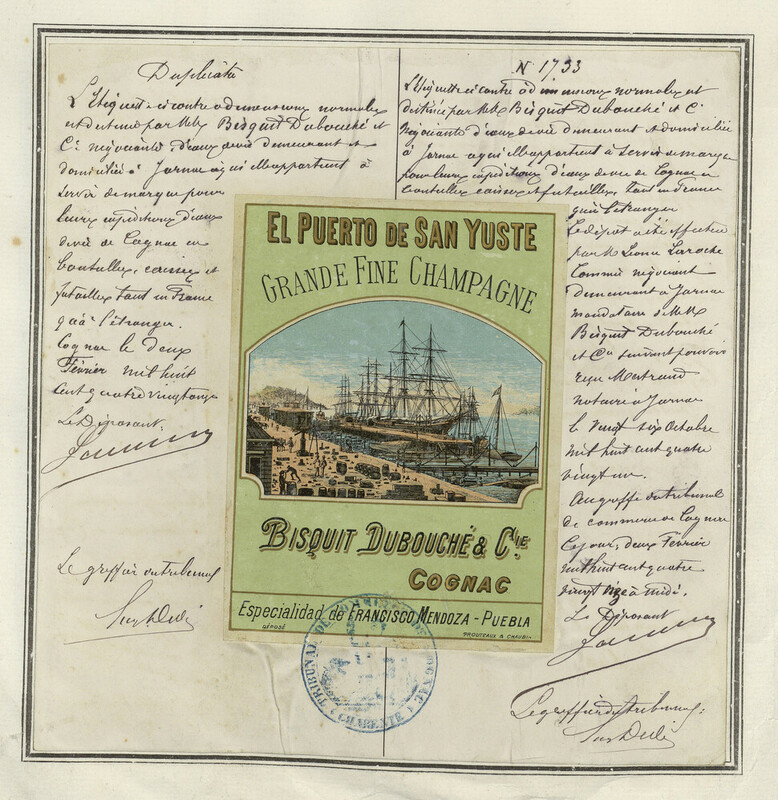 Duplicata
L'Etiquette ci contre a dimensions normales
est destinée par MM Bisquit Dubouché et
Cie négociants d'eaux devie demeurant et
domiciliés à Jarnac aqui elle appartient à
servir de marque pour
leurs expéditions d'eaux
devie de Cognac en
bouteilles, caisses et
futailles tant en France
qu'à l'étranger.
Cognac le deux
Février mil huit
cent quatre vingt onze
Le Déposant:
Le greffier du tribunal
N 1733
L'Etiquette ci contre a dimensions normales est
destinée par MM Bisquit Dubouché et Cie
Négociants d'eaux devie demeurant et domiciliés
à Jarnac aqui elle appartient à servir de marque
pour leurs expéditions d'eaux de vie de Cognac en
bouteilles caisses et futailles tant en France
qu'à l'étranger
Le dépôt a été effectué
par M Léonce Laroche
Commis négociant
demeurant à Jarnac
mandataire de MM
Bisquit Dubouché
et Cie suivant pouvoir
reçu Mertrand
notaire à Jarnac
le vingt six Octobre
mil huit cent quatre
vingt un.
Au greffe du tribunal
de commerce de Cognac
Ce jour, deux Février
mil huit cent quatre
vingt onze à midi.
Le Déposant
Le greffier du tribunal:
EL PUERTO DE SAN YUSTE
GRANDE FINE CHAMPAGNE
BISQUIT DUBOUCHÉ & CIE
COGNAC
Especialidad de FRANCISCO MENDOZA - PUEBLA
DÉPOSÉ
TRIBUNAL DE COMMERCE DE COGNAC
CHARENTE